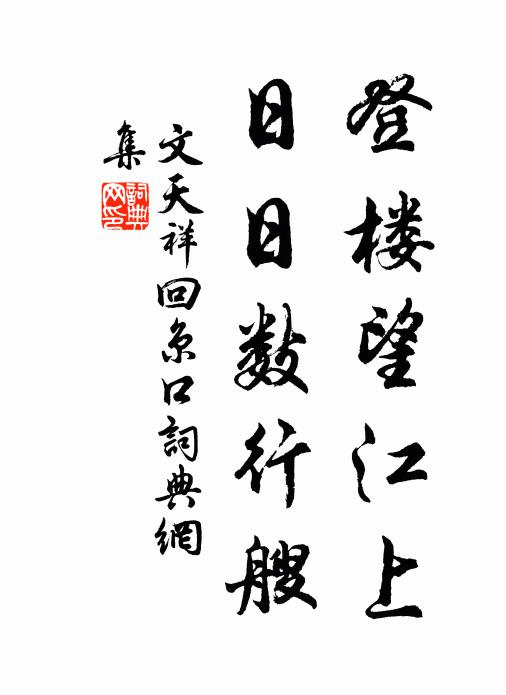 登楼望江上
日日数行艘
文天祥回京口詞典網
集
詞典網印